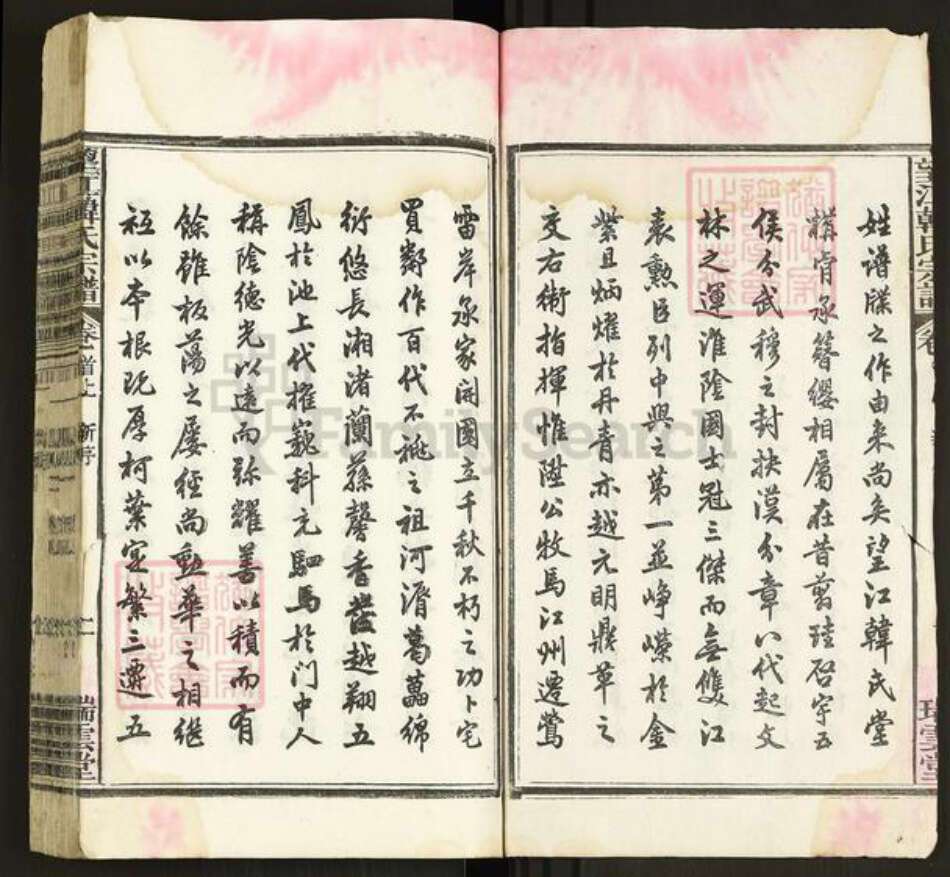 姓谱牒之作由来尚矣望江韓氏堂
構肯承簪纓相屬在昔剪珪啓宇五
侯分武穆之封扶漢分章八代起文
林之運淮陰國士冠三傑而無雙江
表勳臣列中興之第一並崢嶸於金
紫且炳燿於丹青亦越元明鼎革之
交右術指揮惟陞公牧馬江州遷鶯
雷岸承家開國立千秋不朽之功卜宅
買鄰作百代不祧之祖河滸葛藟綿
衍悠長湘渚蘭蓀馨香發越翔五
鳳於池上代擢巍科充駟馬於門中人
稱陰德光以遠而弥耀善以積而有
餘雖板蕩之屡經尚勳華之相継
衹以本根既厚柯葉寔繁三遷五
望江韓氏宗譜
卷首上
新序
二
瑞雲堂
望江韓氏宗譜
瑞雲堂
FamilySearch